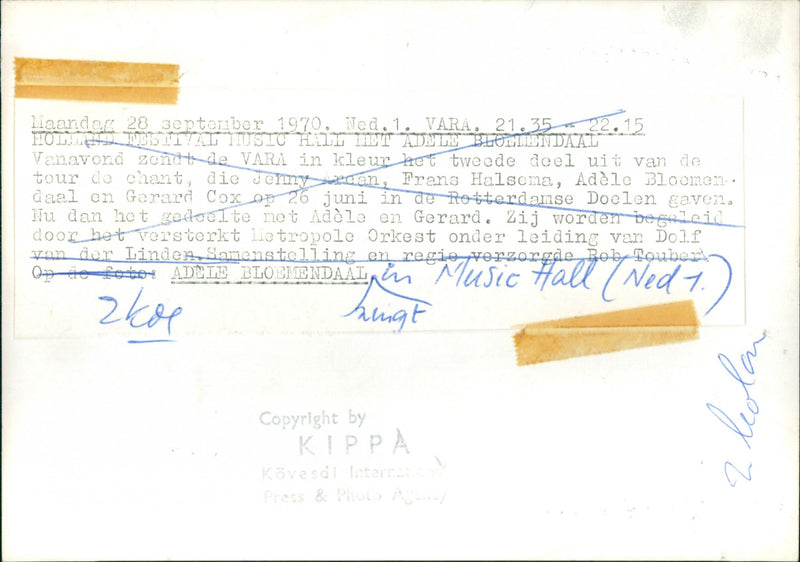 Maandag 28 september 1970. Ned.1. VARA. 21.35 - 22.15
HOLLAND FESTIVAL MUSIC HALL MET ADELE BLOEMENDAAL
Vanavond zendt de VARA in kleur het tweede deel uit van de
tour de chant, die Jenny Arean, Frans Halsema, Adèle Bloemen-
daal en Gerard Cox op 26 juni in de Rotterdamse Doelen gaven.
Nu dan het gedeelte met Adèle en Gerard. Zij worden begeleid
door het versterkt Metropole Orkest onder leiding van Dolf
van der Linden. Samenstelling en regie verzorgde Rob Touber.
Op de foto: ADÈLE BLOEMENDAAL in Music Hall (Ned 1.)
zingt
2 kol
2 kolom
Copyright by
KIPPA
Kövesdi International
Press & Photo Agency